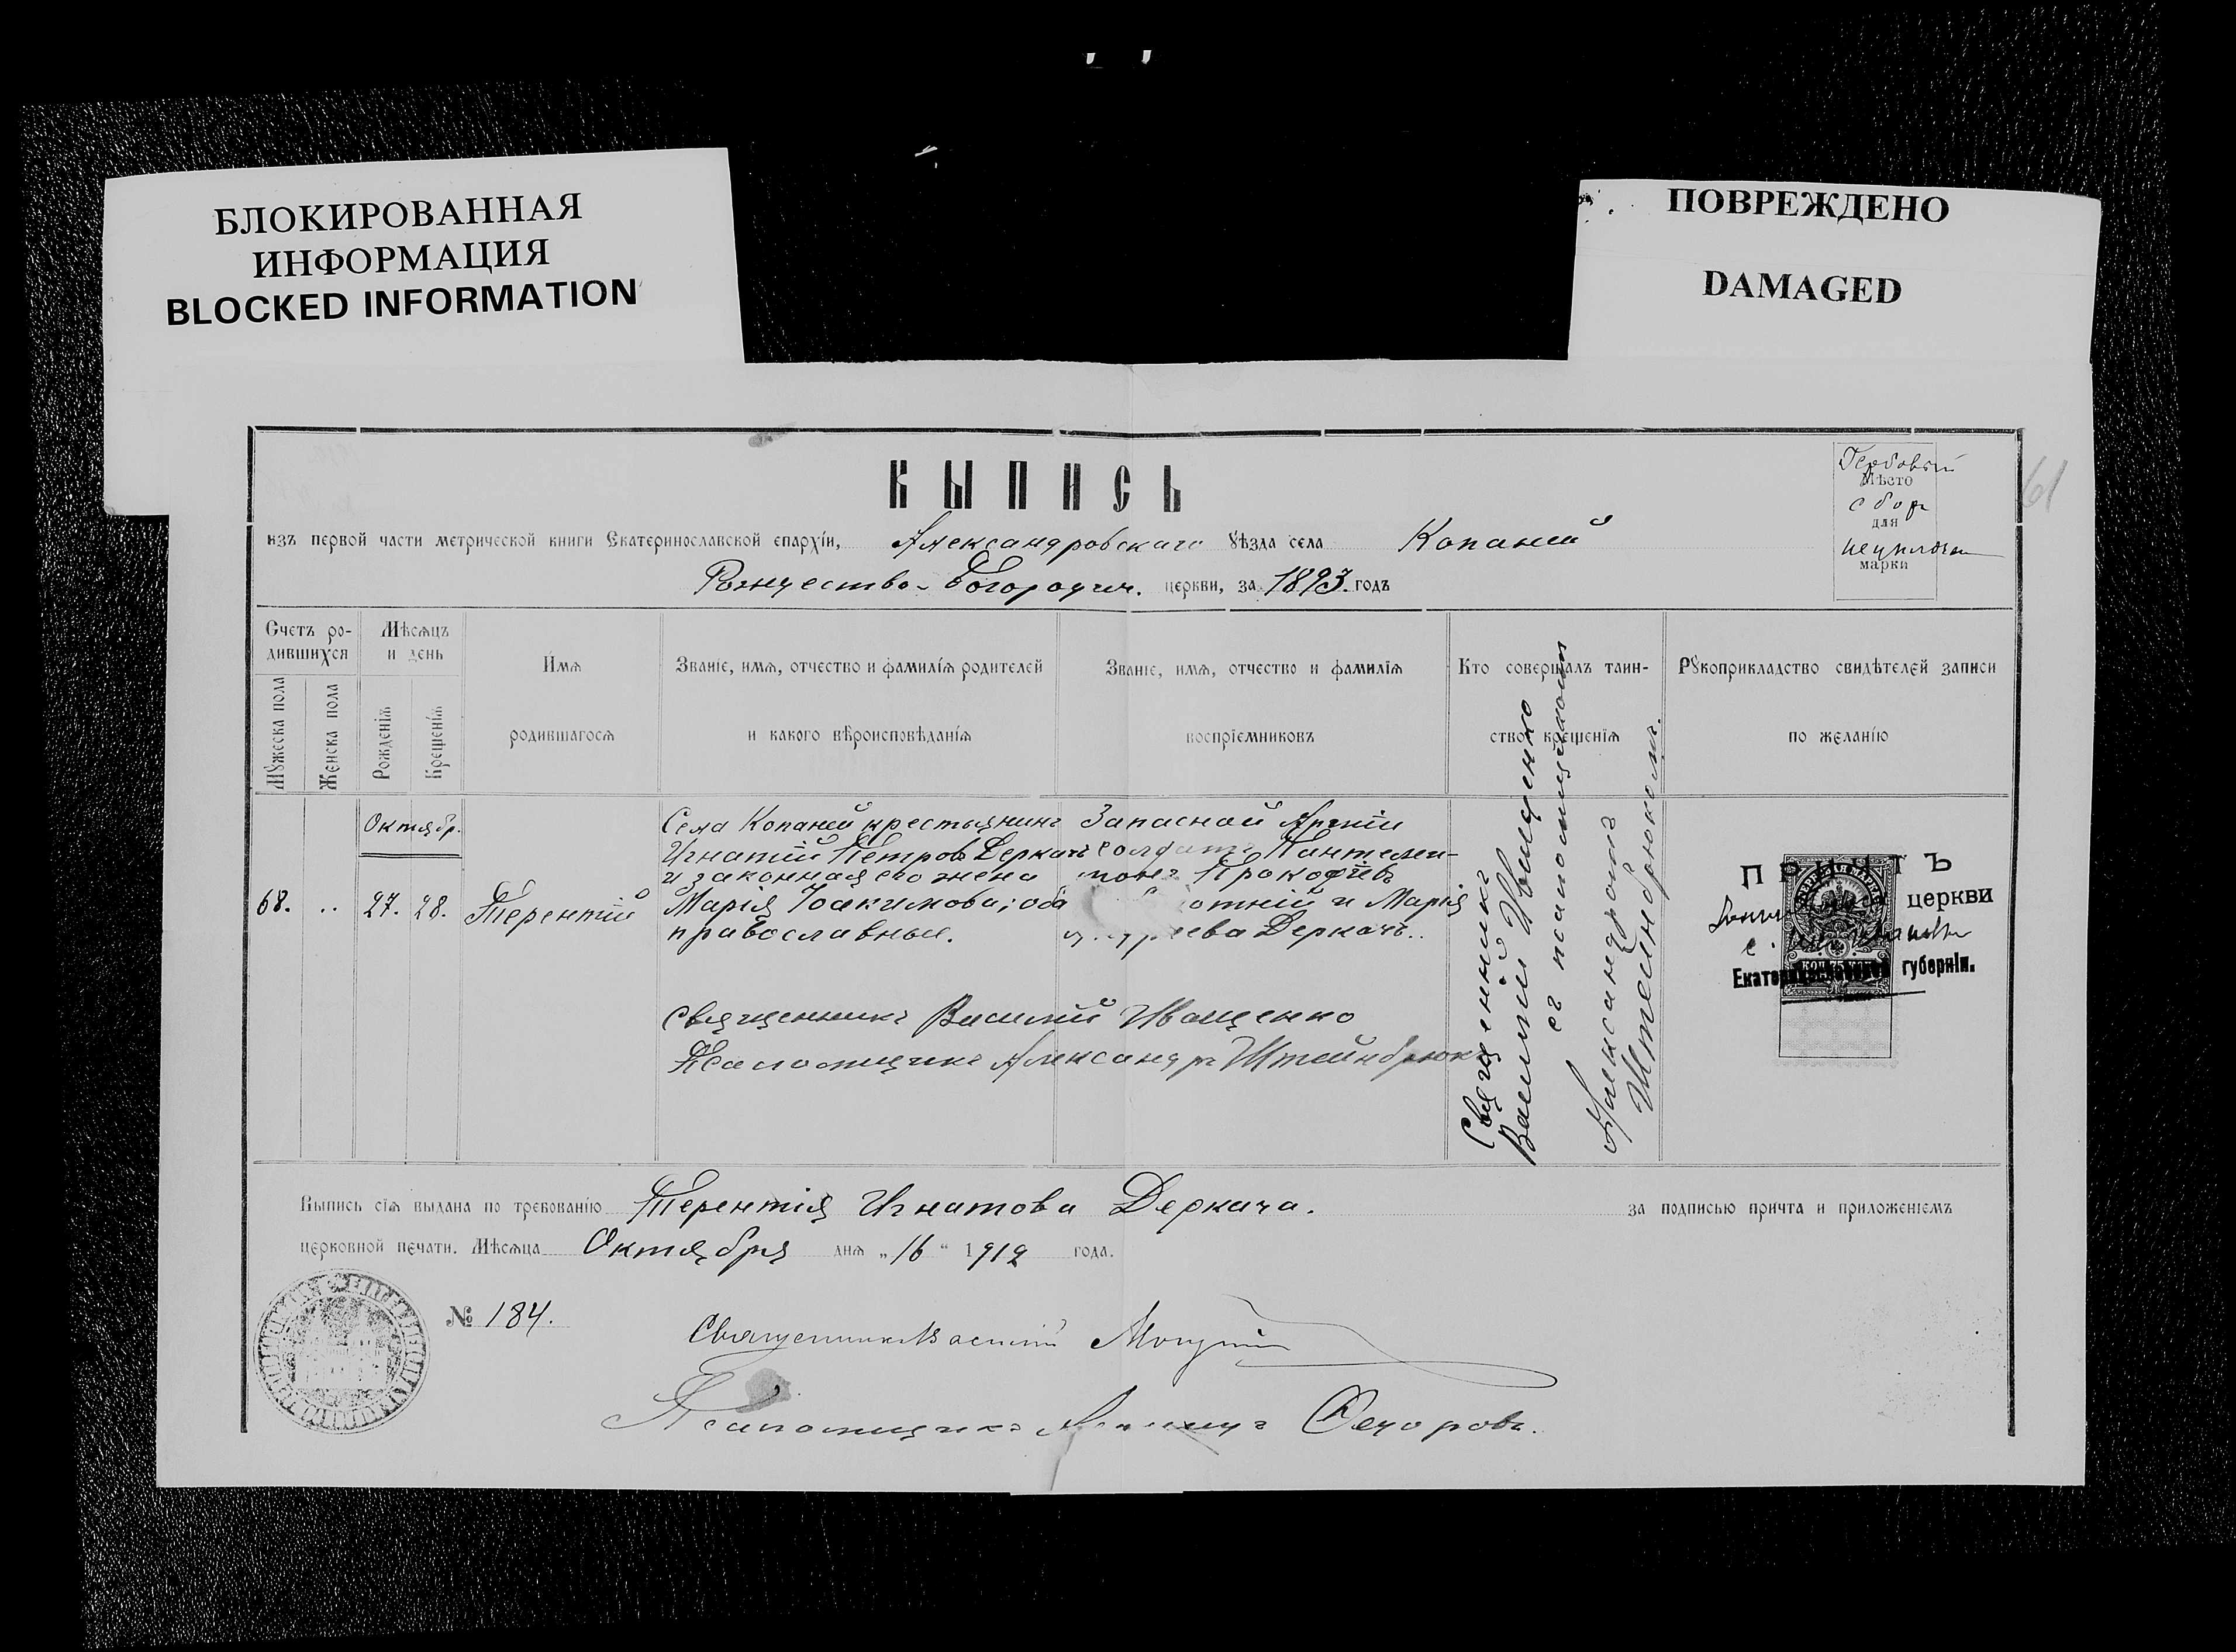 БЛОКИРОВАННАЯ
ИНФОРМАЦИЯ
BLOCKED INFORMATION
ПОВРЕЖДЕНО
DAMAGED
61
ВЫПИСЬ
Гербовый
Мѣсто
сборъ
для
марки
изъ первой части метрической книги Екатеринославской епархіи, Александровскаго уѣзда села Копаней
Рождество-Богородич. церкви, за 1893 годъ
Счетъ ро-
дившихся
Мѣсяцъ
и день
Имя
родившагося
Званіе, имя, отчество и фамилія родителей
и какого вѣроисповѣданія
Званіе, имя, отчество и фамилія
воспріемниковъ
Кто совершалъ таин-
ство крещенія
Рукоприкладство свидѣтелей записи
по желанію
Мужеска пола
Женска пола
Рожденія
Крещенія
Октябр.
68.
27.
28.
Терентій
Села Копаней крестьянинъ
Игнатій Петровъ Деркачъ
и законная его жена
Марія Іоакимова; оба
православные.
Запасной Арміи
солдатъ Пантелеи-
моновъ Прокофіевъ
и Марія
Деркачъ.
Священникъ Василій Иващенко
Псаломщикъ Александръ Штейнбрюкъ
Священникъ
Василій Иващенко
съ псаломщикомъ
Александромъ
Штейнбрюкомъ.
ПРИЧТЪ
церкви
с.
губерніи.
Выпись сія выдана по требованію Терентія Игнатова Деркача. за подписью причта и приложеніемъ
церковной печати. Мѣсяца Октября дня „16“ 1912 года.
№ 184.
Священникъ Василій
Псаломщикъ Ѳедоровъ.